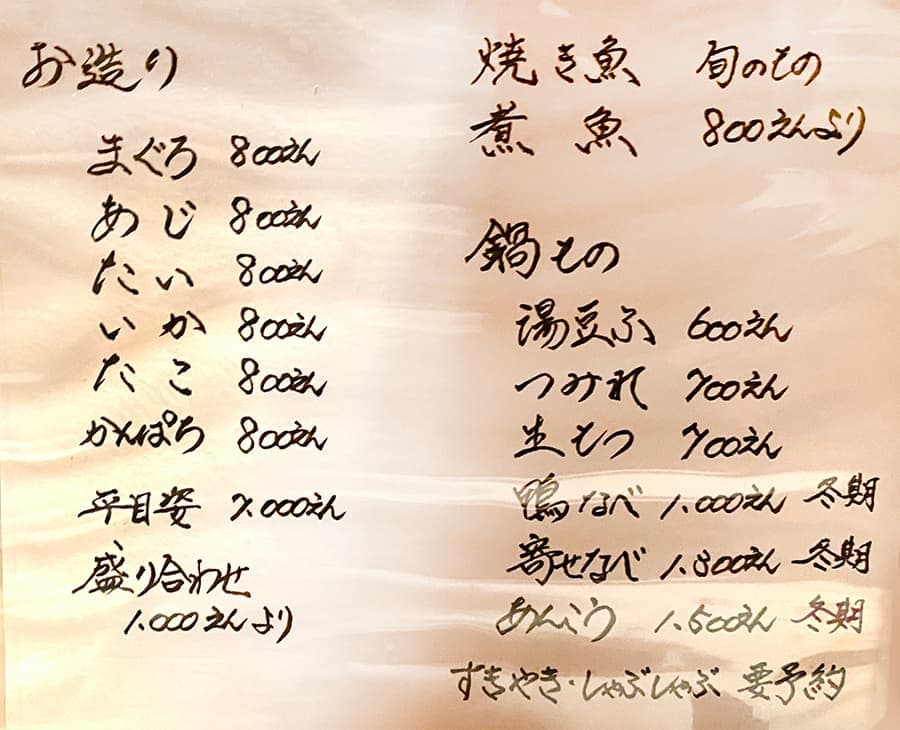 お造り
まぐろ 800えん
あじ 800えん
たい 800えん
いか 800えん
たこ 800えん
かんぱち 800えん
平目姿 7.000えん
盛り合わせ
1.000えんより
焼き魚 旬のもの
煮魚 800えんより
鍋もの
湯豆ふ 600えん
つみれ 700えん
生もつ 700えん
鴨なべ 1.000えん 冬期
寄せなべ 1.800えん 冬期
あんこう 1.500えん 冬期
すきやき・しゃぶしゃぶ 要予約